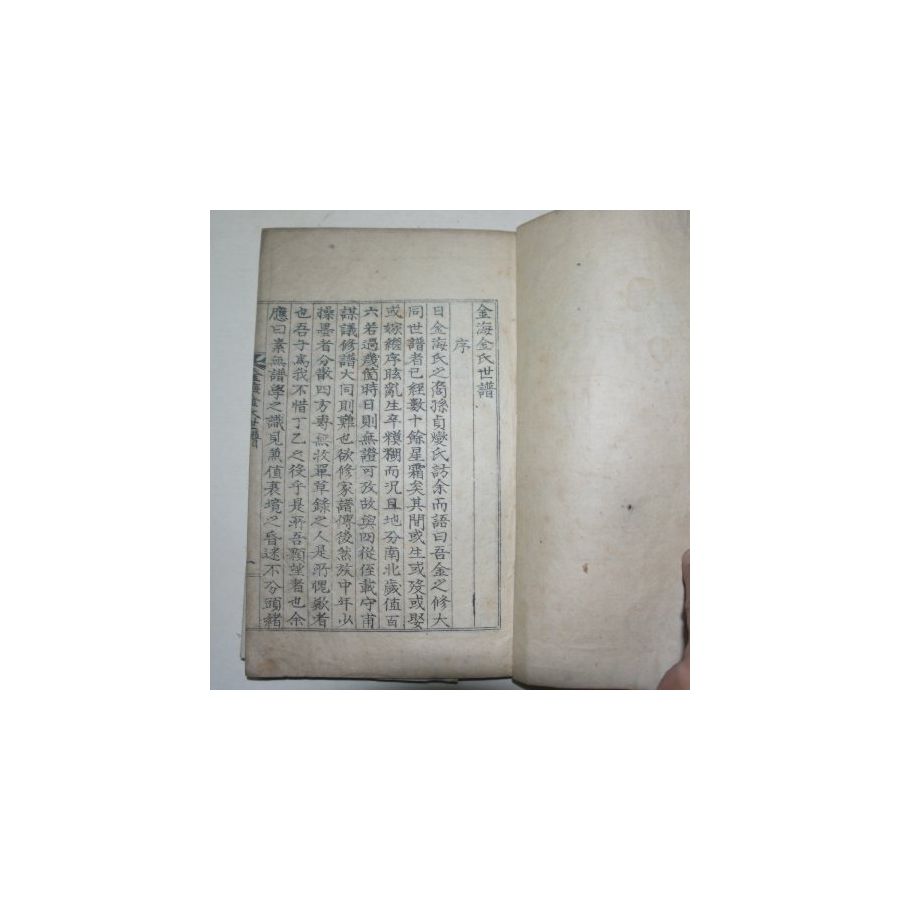 金海金氏世譜
序
日金海氏之裔孫貞燮氏訪余而語曰吾金之修大
同世譜者已經數十餘星霜矣其間或生或歿或娶
或嫁繼序眩亂生卒糢糊而況且地分南北歲值百
六若過幾箇時日則無證可攷故與四從侄載守甫
謀議修譜大同則難也欲修家譜傳後然族中年少
操墨者分散四方專無收單草錄之人是所愧歎者
也吾子爲我不惜丁乙之後乎是所吾顒望者也余
應曰素無譜學之識見兼值衰境之昏迷不分頭緒
金海金氏世譜